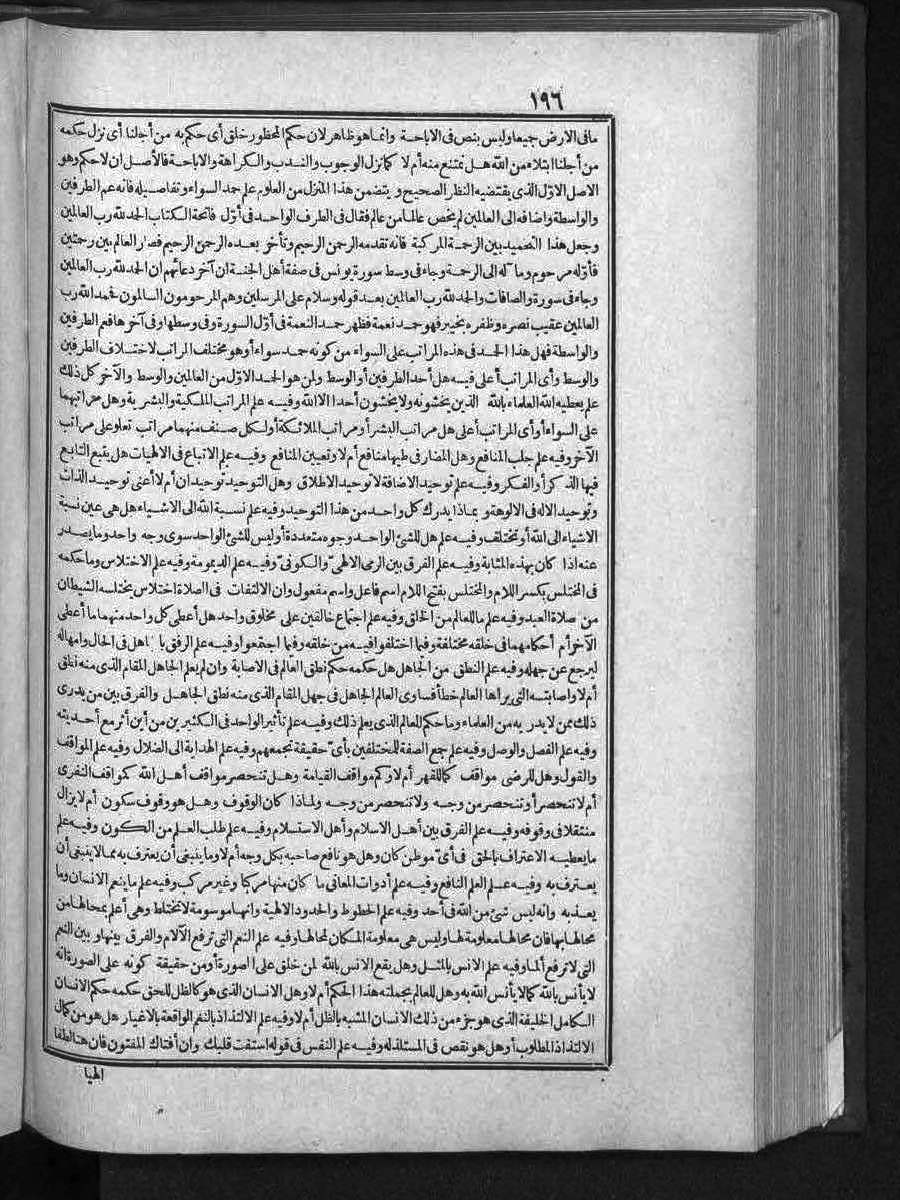 ١٩٦
مافى الارض جميعا وليس بنص فى الاباحة وانما هو ظاهر لان حكم المحظور خلق أى حكم به من أجلنا أى نزل حكمه
من أجلنا ابتلاء من الله هل نمتنع منه أم لا كما نزل الوجوب والندب والكراهة والاباحة فالأصل ان لا حكم وهو
الاصل الاوّل الذى يقتضيه النظر الصحيح ويتضمن هذا المنزل من العلوم علم حمد السواء وتفاصيله فانه عم الطرفين
والواسطة واضافه الى العالمين لم يخص عالما من عالم فقال فى الطرف الواحد فى أوّل فاتحة الكتاب الحمد لله رب العالمين
وجعل هذا التحميد بين الرحمة المركبة فانه تقدمه الرحمن الرحيم وتأخر بعده الرحمن الرحيم فصار العالم بين رحمتين
فأوّله مرحوم وما له الى الرحمة وجاء فى وسط سورة يونس فى صفة أهل الجنة ان آخر دعائهم ان الحمد لله رب العالمين
وجاء فى سورة والصافات والحمد لله رب العالمين بعد قوله وسلام على المرسلين وهم المرحومون السالمون فحمد الله رب
العالمين عقيب نصره وظفره بخير فهو حمد نعمة فظهر حمد النعمة فى أوّل السورة وفى وسطها وفى آخرها فعم الطرفين
والواسطة فهل هذا الحمد فى هذه المراتب على السواء من كونه حمد سواء أو هو مختلف المراتب لاختلاف الطرفين
والوسط وأى المراتب أعلى فيه هل أحد الطرفين أو الوسط ولمن هو الحمد الاوّل من العالمين والوسط والآخر كل ذلك
علم يعطيه الله العلماء بالله الذين يخشونه ولا يخشون أحدا الا الله وفيه علم المراتب الملكية والبشرية وهل مراتبهما
على السواء أو أى المراتب أعلى هل مراتب البشر أو مراتب الملائكة أو لكل صنف منهما مراتب تعلو على مراتب
الآخر وفيه علم جلب المنافع وهل المضار فى طيها منافع أم لا وتعيين المنافع وفيه علم الاتباع فى الالهيات هل يتبع التابع
فيها الذكر أو الفكر وفيه علم توحيد الاضافة لا توحيد الاطلاق وهل التوحيد توحيدان أم لا أعنى توحيد الذات
وتوحيد الاله فى الالوهة وبماذا يدرك كل واحد من هذا التوحيد وفيه علم نسبة الله الى الاشياء هل هى عين نسبة
الاشياء الى الله أو تختلف وفيه علم هل للشئ الواحد وجوه متعددة أو ليس للشئ الواحد سوى وجه واحد وما يصدر
عنه اذا كان بهذه المثابة وفيه علم الفرق بين الرمى الالهىّ والكونىّ وفيه علم الديمومة وفيه علم الاختلاس وما حكمه
فى المختلس بكسر اللام والمختلس بفتح اللام اسم فاعل واسم مفعول وان الالتفات فى الصلاة اختلاس يختلسه الشيطان
من صلاة العبد وفيه علم ما للعالم من الخلق وفيه علم اجتماع خالقين على مخلوق واحد هل أعطى كل واحد منهما ما أعطى
الآخر أم أحكامهما فى خلقه مختلفة وفيما اختلفوا فيه من خلقه وفيما اجتمعوا وفيه علم الرفق بالجاهل فى الحال وامهاله
ليرجع عن جهله وفيه علم النطق من الجاهل هل حكمه حكم نطق العالم فى الاصابة وان لم يعلم الجاهل المقام الذى منه نطق
أم لا واصابته التى يراها العالم خطأ فساوى العالم الجاهل فى جهل المقام الذى منه نطق الجاهل والفرق بين من يدرى
ذلك ممن لا يدريه من العلماء وما حكم العالم الذى يعلم ذلك وفيه علم تأثير الواحد فى الكثيرين من أين أثر مع أحديته
وفيه علم الفصل والوصل وفيه علم جمع الصفة للمختلفين بأىّ حقيقة تجمعهم وفيه علم الهداية الى الضلال وفيه علم المواقف
والقول وهل للرضى مواقف كما للقهر أم لا وكم مواقف القيامة وهل تنحصر مواقف أهل الله كمواقف النفرى
أم لا تنحصر أو تنحصر من وجه ولا تنحصر من وجه ولماذا كان الوقوف وهل هو وقوف سكون أم لا يزال
منتقلا فى وقوفه وفيه علم الفرق بين أهل الاسلام وأهل الاستسلام وفيه علم طلب العلم من الكون وفيه علم
ما يعطيه الاعتراف بالحق فى أىّ موطن كان وهل هو نافع صاحبه بكل وجه أم لا وما ينبغى أن يعترف به مما لا ينبغى أن
يعترف به وفيه علم العلم النافع وفيه علم أدوات المعانى ما كان منها مركبا وغير مركب وفيه علم ما ينعم الانسان وما
يعذبه وانه ليس شئ من الله فى أحد وفيه علم الحظوظ والحدود الالهية وانها موسومة لا تختلط وهى أعلم بمحالها من
محالها بها فان محالها معلومة لها وليس هى معلومة المكان لمحالها وفيه علم النعم التى ترفع الآلام والفرق بينها وبين النعم
التى لا ترفع ألما وفيه علم الانس بالمثل وهل يقع الانس بالله لمن خلق على الصورة أو من حقيقة كونه على الصورة انه
لا يأنس بالله كما لا يأنس الله به وهل للعالم بجملته هذا الحكم أم لا وهل الانسان الذى هو كالظل للحق حكمه حكم الانسان
الكامل الخليفة الذى هو جزء من ذلك الانسان المشبه بالظل أم لا وفيه علم الالتذاذ بالنغم الواقعة بالاغيار هل هو من كمال
الالتذاذ المطلوب أو هل هو نقص فى المستلذ له وفيه علم النفس فى قوله استفت قلبك وان أفتاك المفتون فان هنا لطفا
الهيا